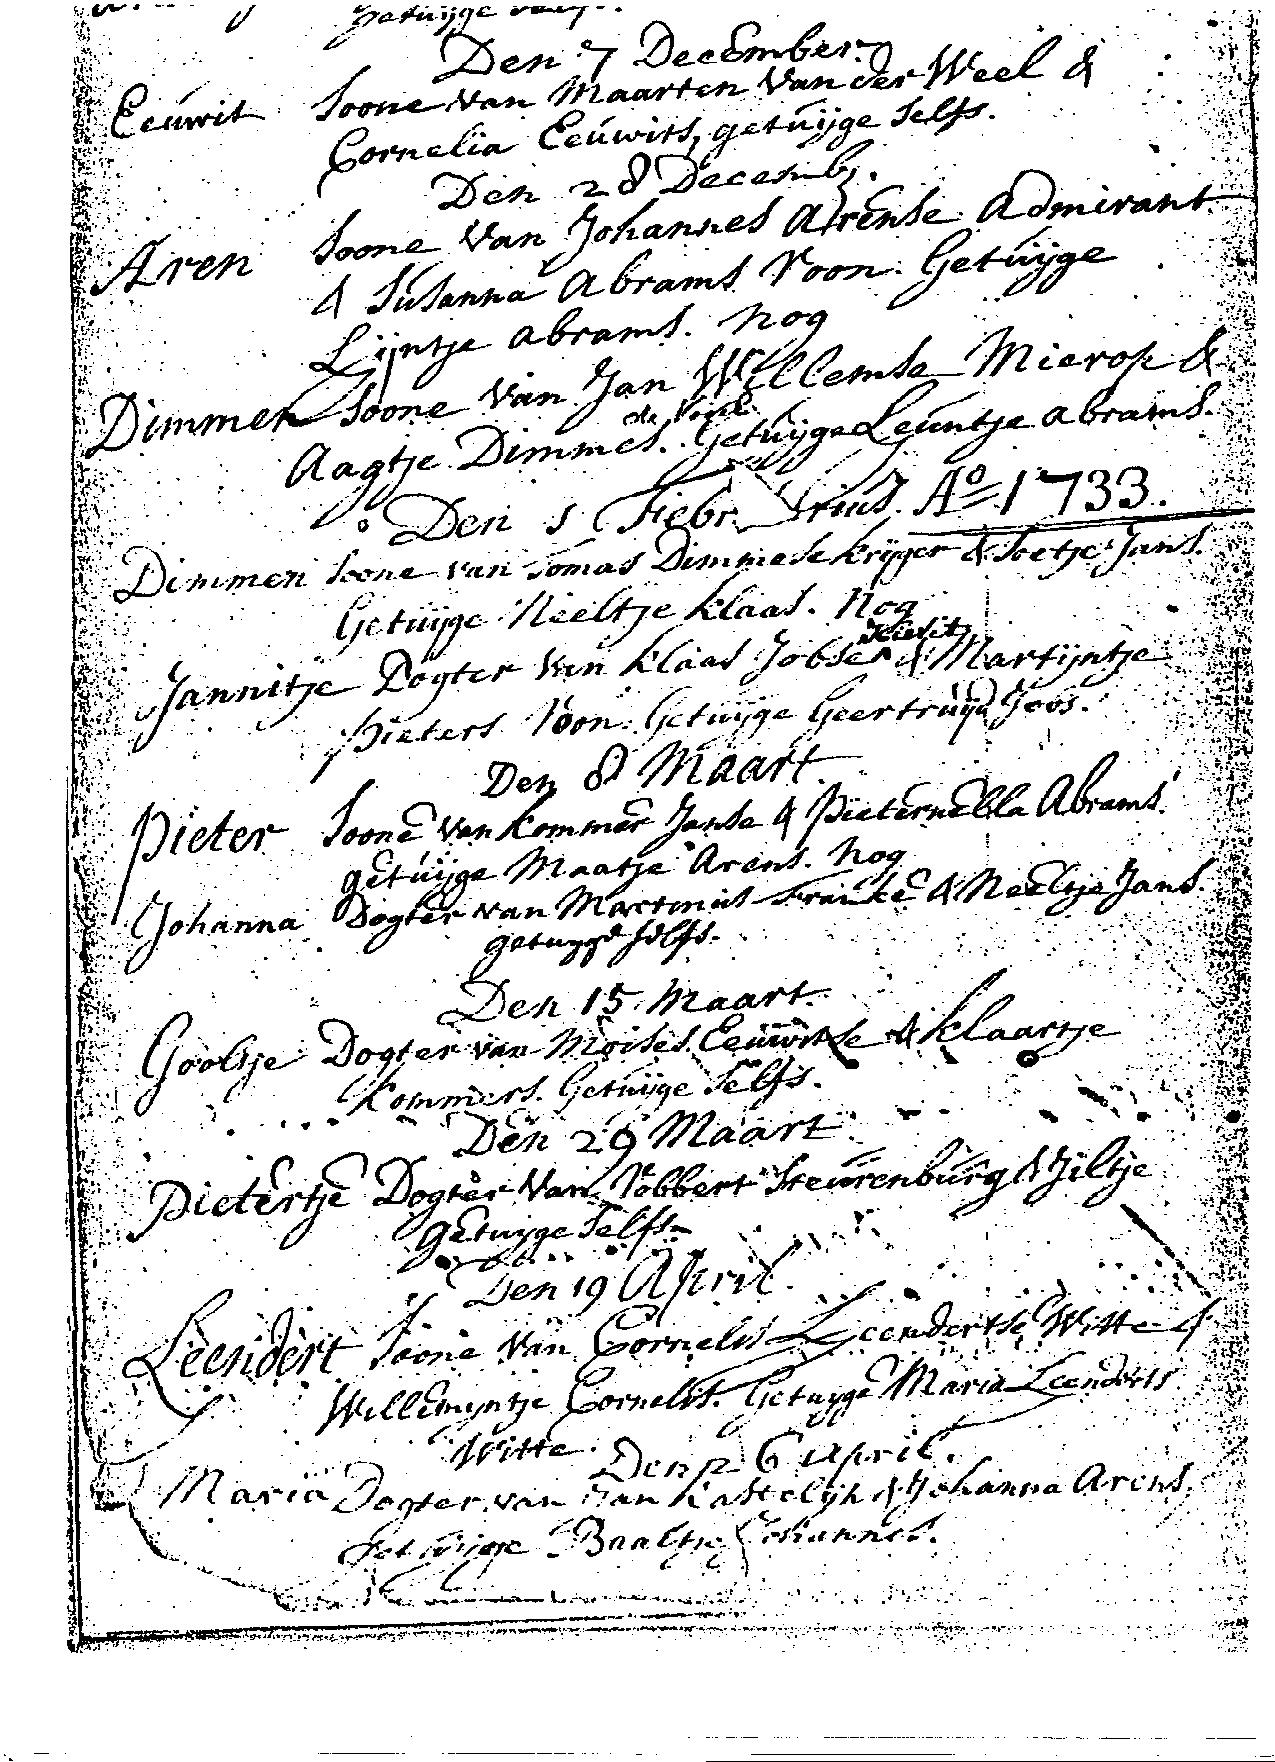 Getuijge
Den 7 December.
Eeuwit Soone van Maarten van der Weel &
Cornelia Eeuwits, getuijge Selfs.
Den 28 Decemb.
Aren Soone van Johannes Arense Admirant
& Susanna Abrams Voon. Getuijge
Lijntje abrams. nog
Dimmen Soone van Jan Willemse Mierop &
Aagtje Dimmes. Getuijge Leuntje abrams.
Den 1 Februarius. Ao 1733.
Dimmen Soone van Tomas Dimmese krijger & Soetje Jans.
Getuijge Neeltje klaas. nog
kievit
Jannitje Dogter van klaas Jobsen & Martijntje
Pieters Voon. Getuijge Geertruijd Joos.
Den 8 Maart.
Pieter Soone van kommer Janse & Pieternella Abrams.
getuijge Maatje Arens. nog
Johanna Dogter van Martinus Franke & Neeltje Jans.
getuijge selfs.
Den 15 Maart.
Gooltje Dogter van Moises Eeuwitse & klaartje
kommers. Getuijge Selfs.
Den 29 Maart
Pietertje Dogter van Robbert Steurenburg & Jiltje
getuijge Selfs.
Den 19 April.
Leendert Soone van Cornelis Leendertse Witte &
Willemijntje Cornelis. Getuijge Maria Leenderts
Witte. Den 26 April.
Maria Dogter van Jan Kastelijn & Johanna Arens.
Getuijge Baaltje Johannes.